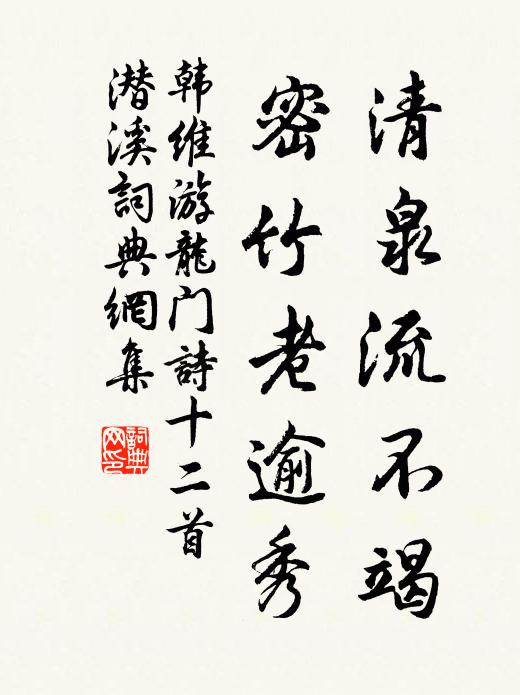 清泉流不竭
密竹老逾秀
韩维游龍门詩十二首
潜溪詞典網集
詞典网印